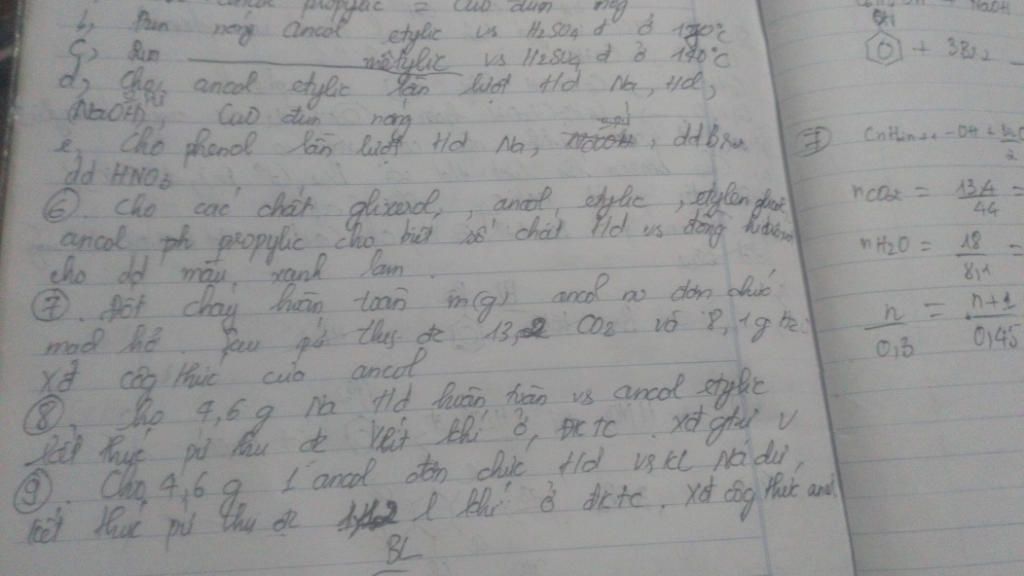 ancol propylic = CuO đun nóng
b, Đun nóng ancol etylic vs H2SO4 đ ở 170°C
c, Đun metylic vs H2SO4 đ ở 140°C
d, Cho ancol etylic lần lượt ttd Na, 
NaOH, CuO đun nóng
e, Cho phenol lần lượt td Na, dd Br2
dd HNO3
⑥. Cho các chất glixerol, ancol etylic, etylen glicol
ancol propylic cho biết số chất td vs đồng
cho dd màu xanh lam.
⑦. Đốt cháy hoàn toàn m(g) ancol no đơn chức
mạch hở. Sau pứ thu đc 13,2 CO2 và 8,1g H2
xđ côg thức của ancol
⑧. Cho 4,6 g Na td hoàn toàn vs ancol etylic
kết thúc pứ thu đc V lít khí ở đktc. xđ gtrị V
⑨. Cho 4,6 g 1 ancol đơn chức td vs KL Na dư,
kết thúc pứ thu đc l khí ở đktc. xđ côg thức
BL
NaOH
OH
+ 3Br2
⑦
nCO2 = 13,4/44 =
nH2O = 18/8,1 =
n/0,3 = n+1/0,45